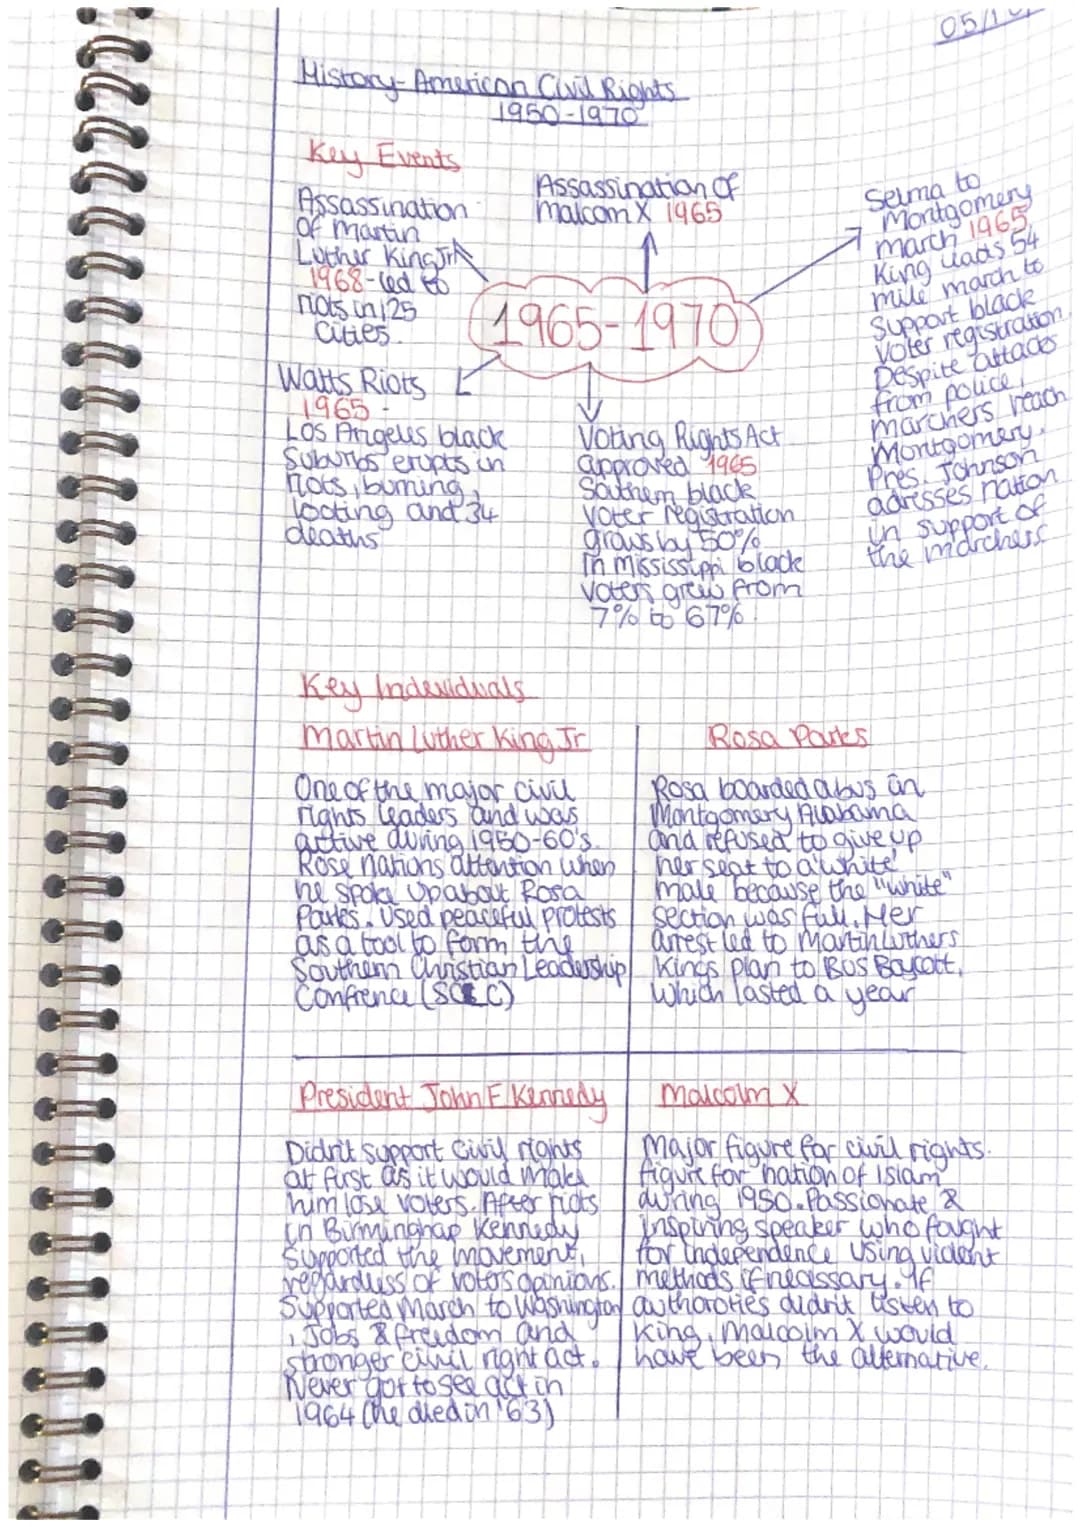 05/1
History- American Civil Rights
1950-1970
Key Events
Assassination
Of Martin
Luther King Jr
1968-led to
riots in 125
cities.
Assassination of
Malcom X 1965
Selma to
Montgomery
march 1965
King leads 54
mile march to
support black
voter registration
Despite attacks
from police,
marchers reach
Montgomery.
Pres. Johnson
adresses nation
in support of
the marchers
1965-1970
Watts Riots
1965-
Los Angeles black
suburbs erupts in
riots, burning,
looting and 34
deaths
Voting Rights Act
approved 1965
Southern black
voter registration
grows by 50%
in mississippi black
voters grew from
7% to 67%.
Key Indeviduals
Martin Luther King Jr
One of the major civil
rights leaders and was
active during 1950-60's.
Rose nations attention when
he spoke up about Rosa
Parks. Used peaceful protests
as a tool to form the
Southern Christian Leadership
Confrence (SCLC)
Rosa Parks
Rosa boarded a bus in
Montgomery Alabama
and refused to give up
her seat to a 'white'
male because the "white"
section was full. Her
arrest led to Martin Luthers
Kings plan to Bus Boycott,
which lasted a year
President John F Kennedy
Didn't support civil rights
at first as it would make
him lose voters. After riots
in Birminghap Kennedy
supported the movement,
regardless of voters opinions.
Supported March to Washington
, Jobs & freedom and
stronger civil right act.
Never got to see act in
1964 (he died in '63)
Malcolm X
Major figure for civil rights.
figure for nation of Islam
during 1950. Passionate &
inspiring speaker who fought
for independence using violent
methods if necissary. If
authoroties didn't listen to
King, Malcolm X would
have been the alternative.